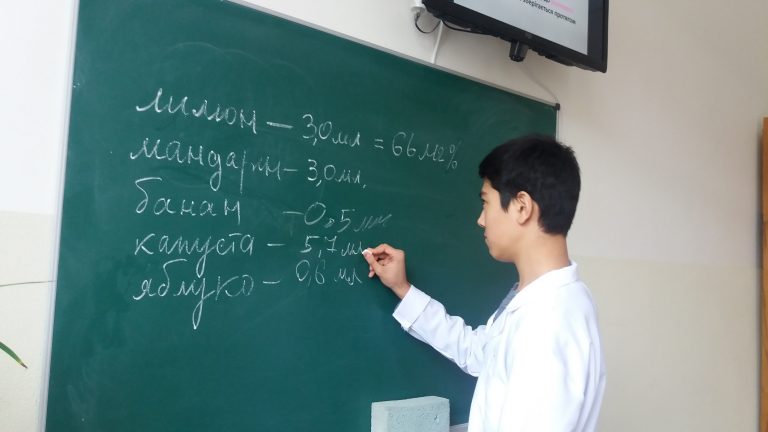 зберігається протягом
лимон – 3,0 мл = 66 мг%
мандарин – 3,0 мл.
банан – 0,5 мл
капуста – 5,7 мл
яблуко – 0,6 мл